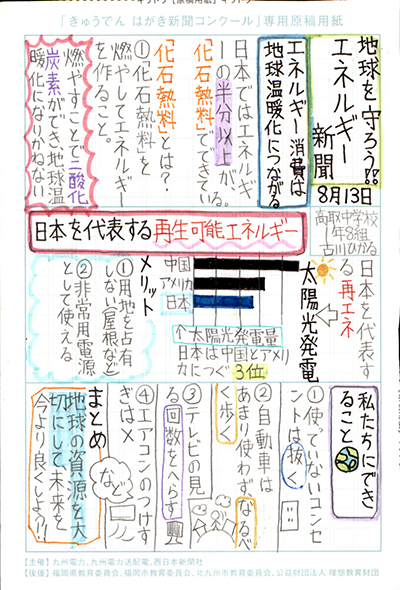 「きゅうでん はがき新聞コンクール」専用原稿用紙
地球を守ろう!!
エネルギー
新聞
8月13日
高取中学校
年8組
古川ひかる
エネルギー消費は
地球温暖化につながる
日本ではエネルギ
ーの半分以上が、
化石熱料でできている。
「化石熱料」とは？
①「化石熱料」を
燃やしてエネルギー
を作ること。
燃やすことで二酸化
炭素ができ、地球温
暖化になりかねない
日本を代表する再生可能エネルギー
日本を代表す
る再エネ
太陽光発電
中国
アメリカ
日本
↑太陽光発電量
日本は中国とアメリ
カにつぐ3位
メリット
①用地を占有
しない(屋根など)
②非常用電源
として使える
私たちにでき
ること
①使っていないコンセ
ントは抜く
②自動車は
あまり使わずなるべ
く歩く
③テレビの見
る回数をへらす
④エアコンのつけす
ぎは×
など
まとめ
地球の資源を大
切にして、未来を
今より良くしよう!!
【主催】九州電力、九州電力送配電、西日本新聞社
【後援】福岡県教育委員会、福岡市教育委員会、北九州市教育委員会、公益財団法人 理想教育財団